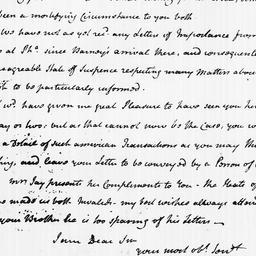 been a mortifying Circumstance to you both
We have not as yet recd. any Letters of Importance from
at Pha. since Barney's arrival there, and consequently
agreable State of Suspence respecting many Matters abou
to be particularly informed.
wd. have given me great Pleasure to have seen you her
ay or two; but as that cannot now be the Case, you w
a Detail of such american Transactions as you may th
ing, and leave your Letter to be conveyed by a Person of
Mrs Jay presents her Compliments to You. the Heats of
made us both Invalids. my best wishes always atten
your Brother he is too sparing of his Letters—
I am Dear Sir
your most obt. Servt